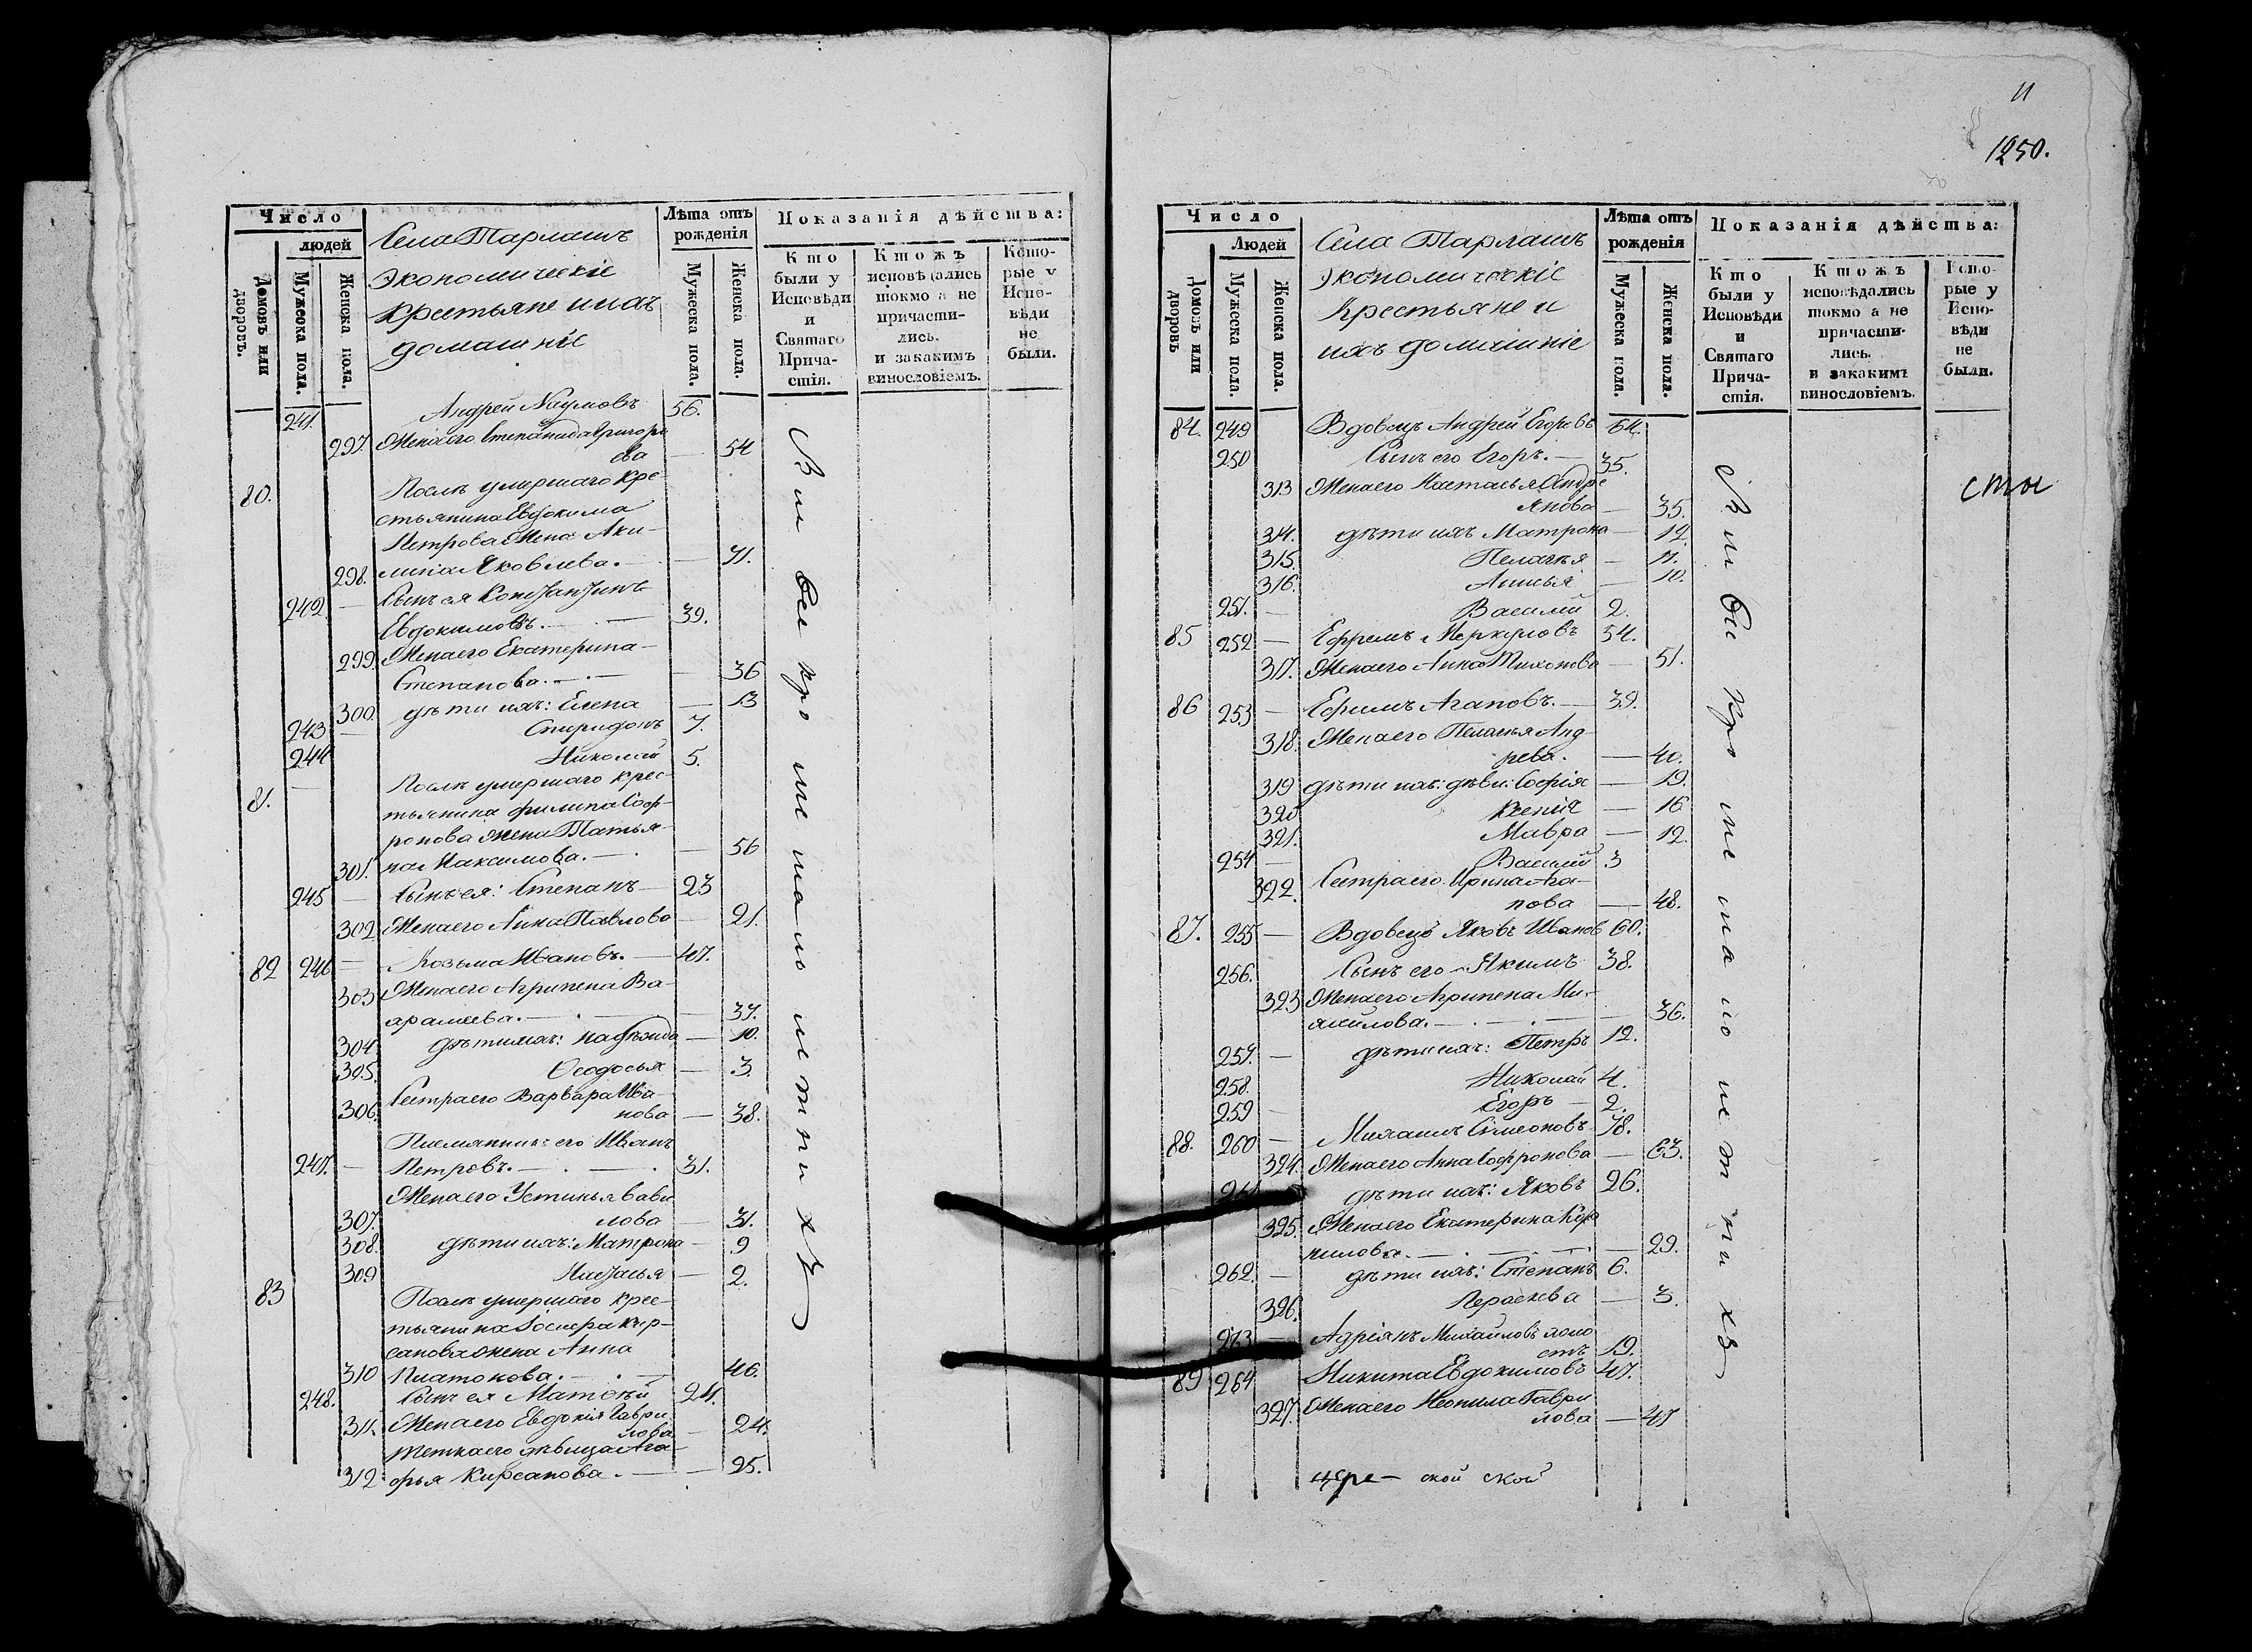 Число
людей
Домовъ или дворовъ.
Мужеска пола.
Женска пола.
Села Тарлашъ
Экономическіе
крестьяне и ихъ
домашніе
Лѣта отъ рожденія
Мужеска пола.
Женска пола.
Показанія дѣйства:
Кто были у Исповѣди и Святаго Причастія.
Ктожъ исповѣдались токмо а не причастились. и закакимъ винословіемъ.
Которые у Исповѣди не были.
241. Андрей Наумовъ 56.
297. Жена его Степанида Григорь
ева — 54
80. Послѣ умершаго кре-
стьянина Евдокима
Петрова жена Аки-
298. лина Яковлева. — 71.
242. — Сынъ ея Константинъ
Евдокимовъ. — 39.
299. Жена его Екатерина
Степанова. — 36
300. дѣти ихъ: Елена — 13
243 — Спиридонъ 7.
244 Николай 5.
81. — Послѣ умершаго крес-
тьянина Филипа Соф-
ронова жена Татья-
301. на Максимова. — 56
245 — Сынъ ея: Степанъ — 23
302 Жена его Анна Павлова — 21.
82 246 — Козьма Ивановъ. — 47.
303 Жена его Агрипена Ва-
арамеева. — 37.
304. дѣти ихъ: Надѣжда — 10.
305. Ѳеодосья — 3.
306. Сестра его Варвара Ива-
нова — 38.
Племянникъ его Иванъ
247. — Петровъ. — 31.
Жена его Устинья Вави
307. лова — 31.
308. дѣти ихъ: Матрона — 9
309 Настасья — 2.
83 Послѣ умершаго крес-
тьянина Іосифа Кир-
санова жена Анна
310 Платонова. — 46.
248. Сынъ ея Матвѣй 24.
311. Жена его Евдокія Гаври
лова — 24.
Тетка его дѣвица Ага-
312 фья Кирсанова. — 95.
Сіи всѣ
11
1250.
Число
Людей
Домовъ или дворовъ
Мужеска пола.
Женска пола.
Села Тарлашъ
Экономическіе
Крестьяне и
ихъ домашніе
Лѣта отъ рожденія
Мужеска пола.
Женска пола.
Показанія дѣйства:
Кто были у Исповѣди и Святаго Причастія.
Ктожъ исповѣдались токмо а не причастились. и закакимъ винословіемъ.
Которые у Исповѣди не были.
84. 249 Вдовецъ Андрей Егоровъ 64.
250 Сынъ его Егоръ. — 35.
313 Жена его Настасья Андре
янова — 35.
314. дѣти ихъ Матрона — 12
315. Пелагѣя — 11.
316. Анисья — 10.
251. — Василій 2.
85 252 — Ефремъ Меркуловъ 54.
317. Жена его Анна Тихонова — 51.
86 253 — Ефимъ Агаповъ. — 39.
318. Жена его Пелагѣя Анд
рева. — 40.
319 дѣти ихъ: дѣви: Софія — 19.
320 Ксенія — 16
321. Мавра — 12.
254 — Василій 3
322. Сестра его Ирина Ага-
пова — 48.
87. 255 — Вдовецъ Яковъ Ивановъ 60.
256. Сынъ его Якимъ 38.
323 Жена его Агрипена Ми-
хайлова. — 36.
257. — дѣти ихъ: Петръ 12.
258. Николай 4.
259 — Егоръ — 2.
88. 260 — Михаилъ Симеоновъ 78.
324. Жена его Анна Софронова — 63.
261 дѣти ихъ: Яковъ 26.
325. Жена его Екатерина Кор
нилова. — 29.
262 — дѣти ихъ: Степанъ 6.
326. Параскева — 3.
263 — Адріянъ Михайловъ холо
стъ 19.
89 264 Никита Евдокимовъ 47.
327. Жена его Неонила Гаври
лова — 47
сты
ской ской